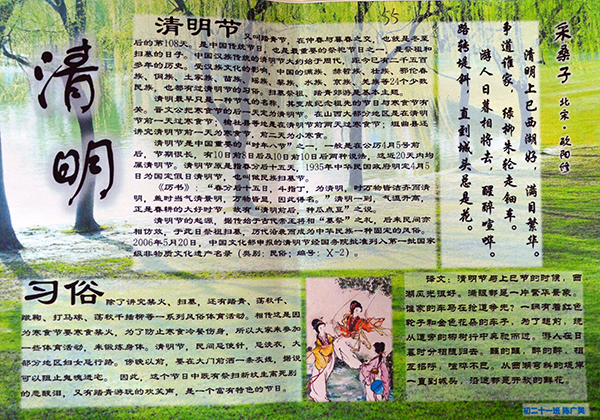 清明
清明节
又叫踏青节，在仲春与暮春之交，也就是冬至
后的第108天。是中国传统节日，也是最重要的祭祀节日之一，是祭祖和
扫墓的日子。中国汉族传统的清明节大约始于周代，距今已有二千五百
多年的历史。受汉族文化的影响，中国的满族、赫哲族、壮族、鄂伦春
族、侗族、土家族、苗族、瑶族、黎族、水族、京族、羌族等24个少数
民族，也都有过清明节的习俗。扫墓祭祖、踏青郊游是基本主题。
清明最早只是一种节气的名称，其变成纪念祖先的节日与寒食节有
关。晋文公把寒食节的后一天定为清明节。在山西大部分地区是在清明节
前一天过寒食节；榆社县等地是在清明节前两天过寒食节；垣曲县还
讲究清明节前一天为寒食节，前二天为小寒食。
清明节是中国重要的“时年八节”之一，一般是在公历4月5号前
后，节期很长，有10日前8日后及10日前10日后两种说法，这近20天内均
属清明节。清明节原是指春分后十五天，1935年中华民国政府明定4月5
日为国定假日清明节，也叫做民族扫墓节。
《历书》：“春分后十五日，斗指丁，为清明，时万物皆洁齐而清
明，盖时当气清景明，万物皆显，因此得名。”清明一到，气温升高，
正是春耕的大好时节，故有“清明前后，种瓜点豆”之说。
清明节的起源，据传始于古代帝王将相“墓祭”之礼，后来民间亦
相仿效，于此日祭祖扫墓，历代沿袭而成为中华民族一种固定的风俗。
2006年5月20日，中国文化部申报的清明节经国务院批准列入第一批国家
级非物质文化遗产名录（类别：民俗；编号：X-2）。
55
采桑子 北宋·欧阳修
清明上巳西湖好，满目繁华。
争道谁家，绿柳朱轮走钿车。
游人日暮相将去，醒醉喧哗。
路转堤斜，直到城头总是花。
习俗
除了讲究禁火、扫墓，还有踏青、荡秋千、
蹴鞠、打马球、荡秋千插柳等一系列风俗体育活动。相传这是因
为寒食节要寒食禁火，为了防止寒食冷餐伤身，所以大家来参加
一些体育活动，来锻炼身体。清明节，民间忌使针，忌洗衣，大
部分地区妇女忌行路。傍晚以前，要在大门前洒一条灰线，据说
可以阻止鬼魂进宅。因此，这个节日中既有祭扫新坟生离死别
的悲酸泪，又有踏青游玩的欢笑声，是一个富有特色的节日。
译文：清明节与上巳节的时候，西
湖风光很好。满眼都是一片繁华景象。
谁家的车马在抢道争先？一辆有着红色
轮子和金色花朵的车子，为了赶前，绕
从道旁的柳树行中奔驰而过。游人在日
暮时分相随归去。醒的醒，醉的醉，相
互招呼，喧哗不已。从西湖弯斜的堤岸
一直到城头，沿途都是开放的鲜花。
初二十一班 陈广英